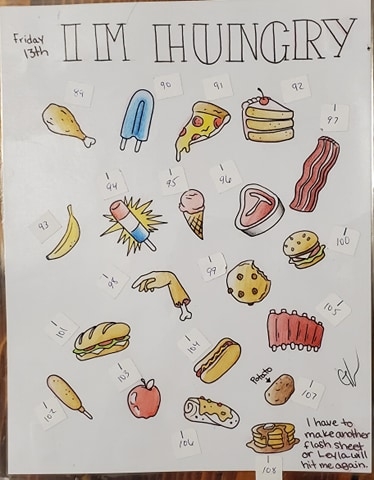 Friday
13th
IM HUNGRY
89
90
91
92
97
93
94
95
96
100
98
99
105
101
104
103
Potato
107
102
106
108
I have to
make another
flash sheet
or Leyla will
hit me again.